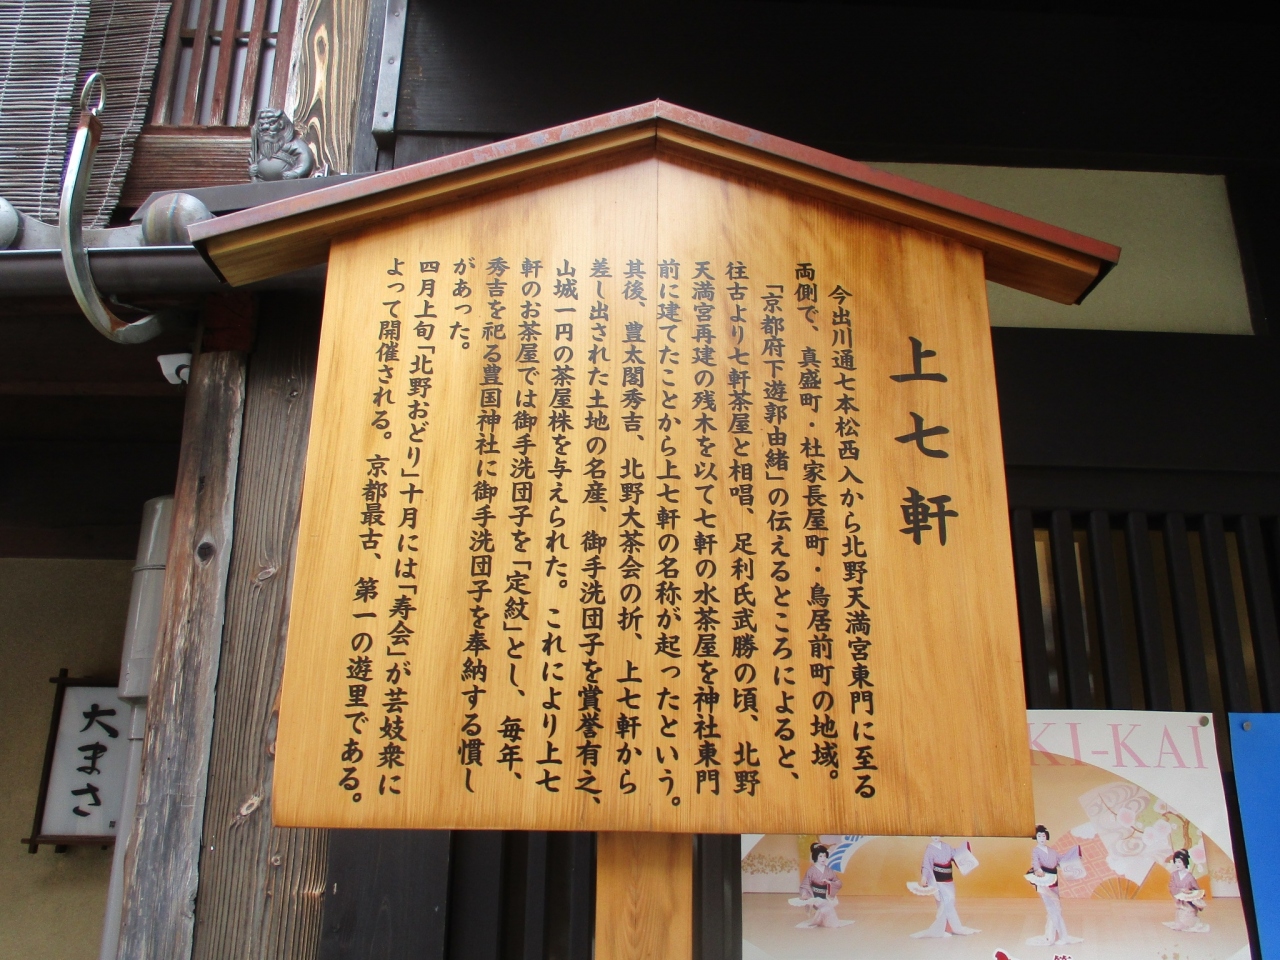 上七軒
今出川通七本松西入から北野天満宮東門に至る
両側で、真盛町・社家長屋町・鳥居前町の地域。
「京都府下遊郭由緒」の伝えるところによると、
往古より七軒茶屋と相唱、足利氏武勝の頃、北野
天満宮再建の残木を以て七軒の水茶屋を神社東門
前に建てたことから上七軒の名称が起ったという。
其後、豊太閤秀吉、北野大茶会の折、上七軒から
差し出された土地の名産、御手洗団子を賞誉有之、
山城一円の茶屋株を与えられた。これにより上七
軒のお茶屋では御手洗団子を「定紋」とし、毎年、
秀吉を祀る豊国神社に御手洗団子を奉納する慣し
があった。
四月上旬「北野おどり」十月には「寿会」が芸妓衆に
よって開催される。京都最古、第一の遊里である。
大まさ
KI-KAI